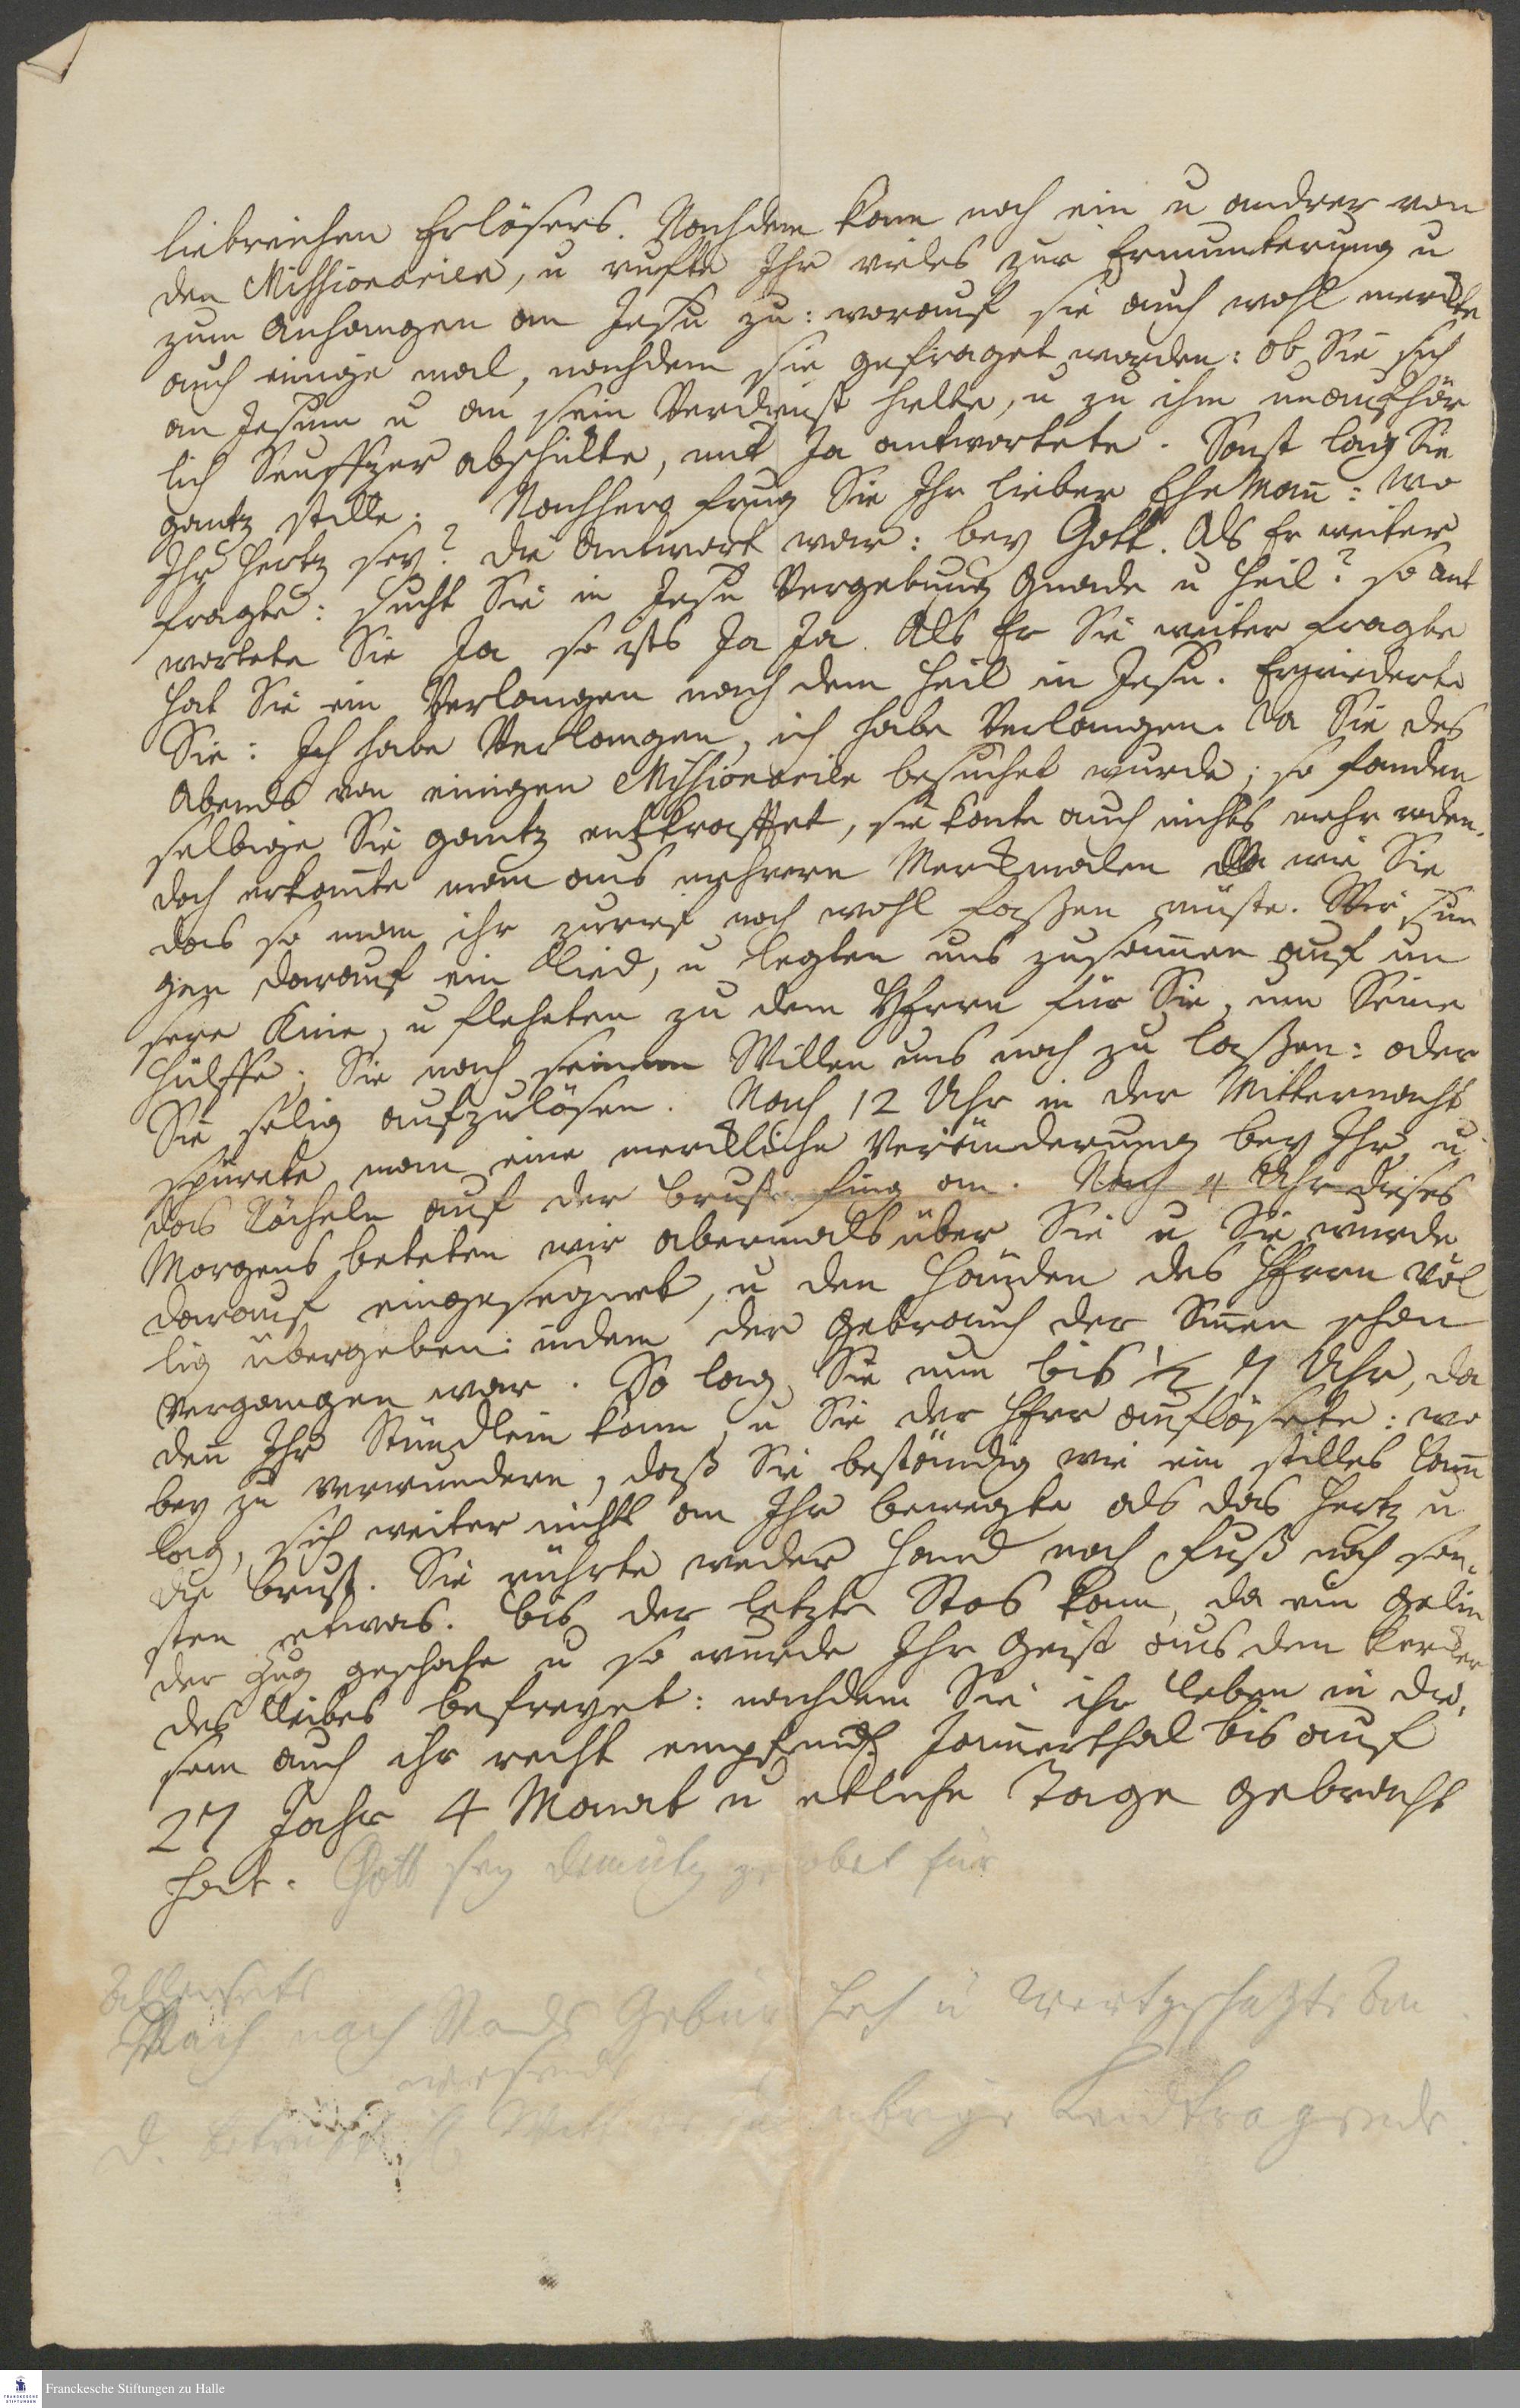 liebreichen Erlösers. Nachdem kam noch ein u andrer von
den Missionariis, u rufte Ihr vieles zur Ermunterung u
zum Anhangen an Jesu zu: worauf sie auch wohl merckte
auch einige mal, nachdem sie gefraget worden: ob Sie sich
an Jesum u an sein Verdienst hielte, u zu ihm unaufhör
lich Seuffzer abschickte, mit Ja antwortete. Sonst lag Sie
gantz stille. Nachhero frug Sie Ihr lieber Ehe Mañ: wo
Ihr Hertz sey? die Antwort war: bey Gott. Als Er weiter
fragte: sucht Sie in Jesu Vergebung Gnade u Heil? so ant
wortete Sie Ja so ists Ja Ja. Als Er Sie weiter fragte
hat Sie ein Verlangen nach dem Heil in Jesu. Erwiederte
Sie: Ich habe Verlangen, ich habe Verlangen. Da Sie des
Abends von einigen Missionariis besuchet wurde; so fanden
selbige Sie gantz entkrafftet, sie konte auch nichts mehr reden.
doch erkañte man aus mehrern Merckmalen wie Sie
das so man ihr zurief noch wohl faßen müste. Wir sun
gen darauf ein Lied, u legten uns zusam̃en auf un
sere Knie, u fleheten zu dem HErrn für Sie, um Seine
Hülffe; Sie nach seinem Willen uns noch zu laßen: oder
Sie selig aufzulösen. Nach 12 Uhr in der Mitternacht
spürete man eine merckliche Veränderung bey Ihr, u
das Röcheln auf der Brust fing an. Nach 4 Uhr dieses
Morgens beteten wir abermals über Sie u Sie wurde
darauf eingesegnet, u den Händen des HErrn völ
lig übergeben: indem der Gebrauch der Siñen schon
vergangen war. So lag Sie nun bis ½ 7 Uhr, da
deñ Ihr Stündlein kam, u Sie der HErr auflösete: wo
bey zu verwundern, daß Sie beständig wie ein stilles Lam̃
lag, sich weiter nichts an Ihr bewegte als das Hertz u
die Brust. Sie rührte weder Hand noch Fuß noch son-
sten etwas. bis der letzte Stos kam, da ein gelin
der Zug geschahe u so wurde Ihr Geist aus dem Kercker
des Leibes befreyet: nachdem Sie ihr Leben in die-
sem auch ihr recht Jam̃erthal bis auf
27 Jahr 4 Monat u etliche Tage gebracht
hat. Gott sey gelobet für
Allerseits
Nach Stands Gebür hoch u wertgeschazte An
wesende
d. übrige Leidtragende
Franckesche Stiftungen zu Halle